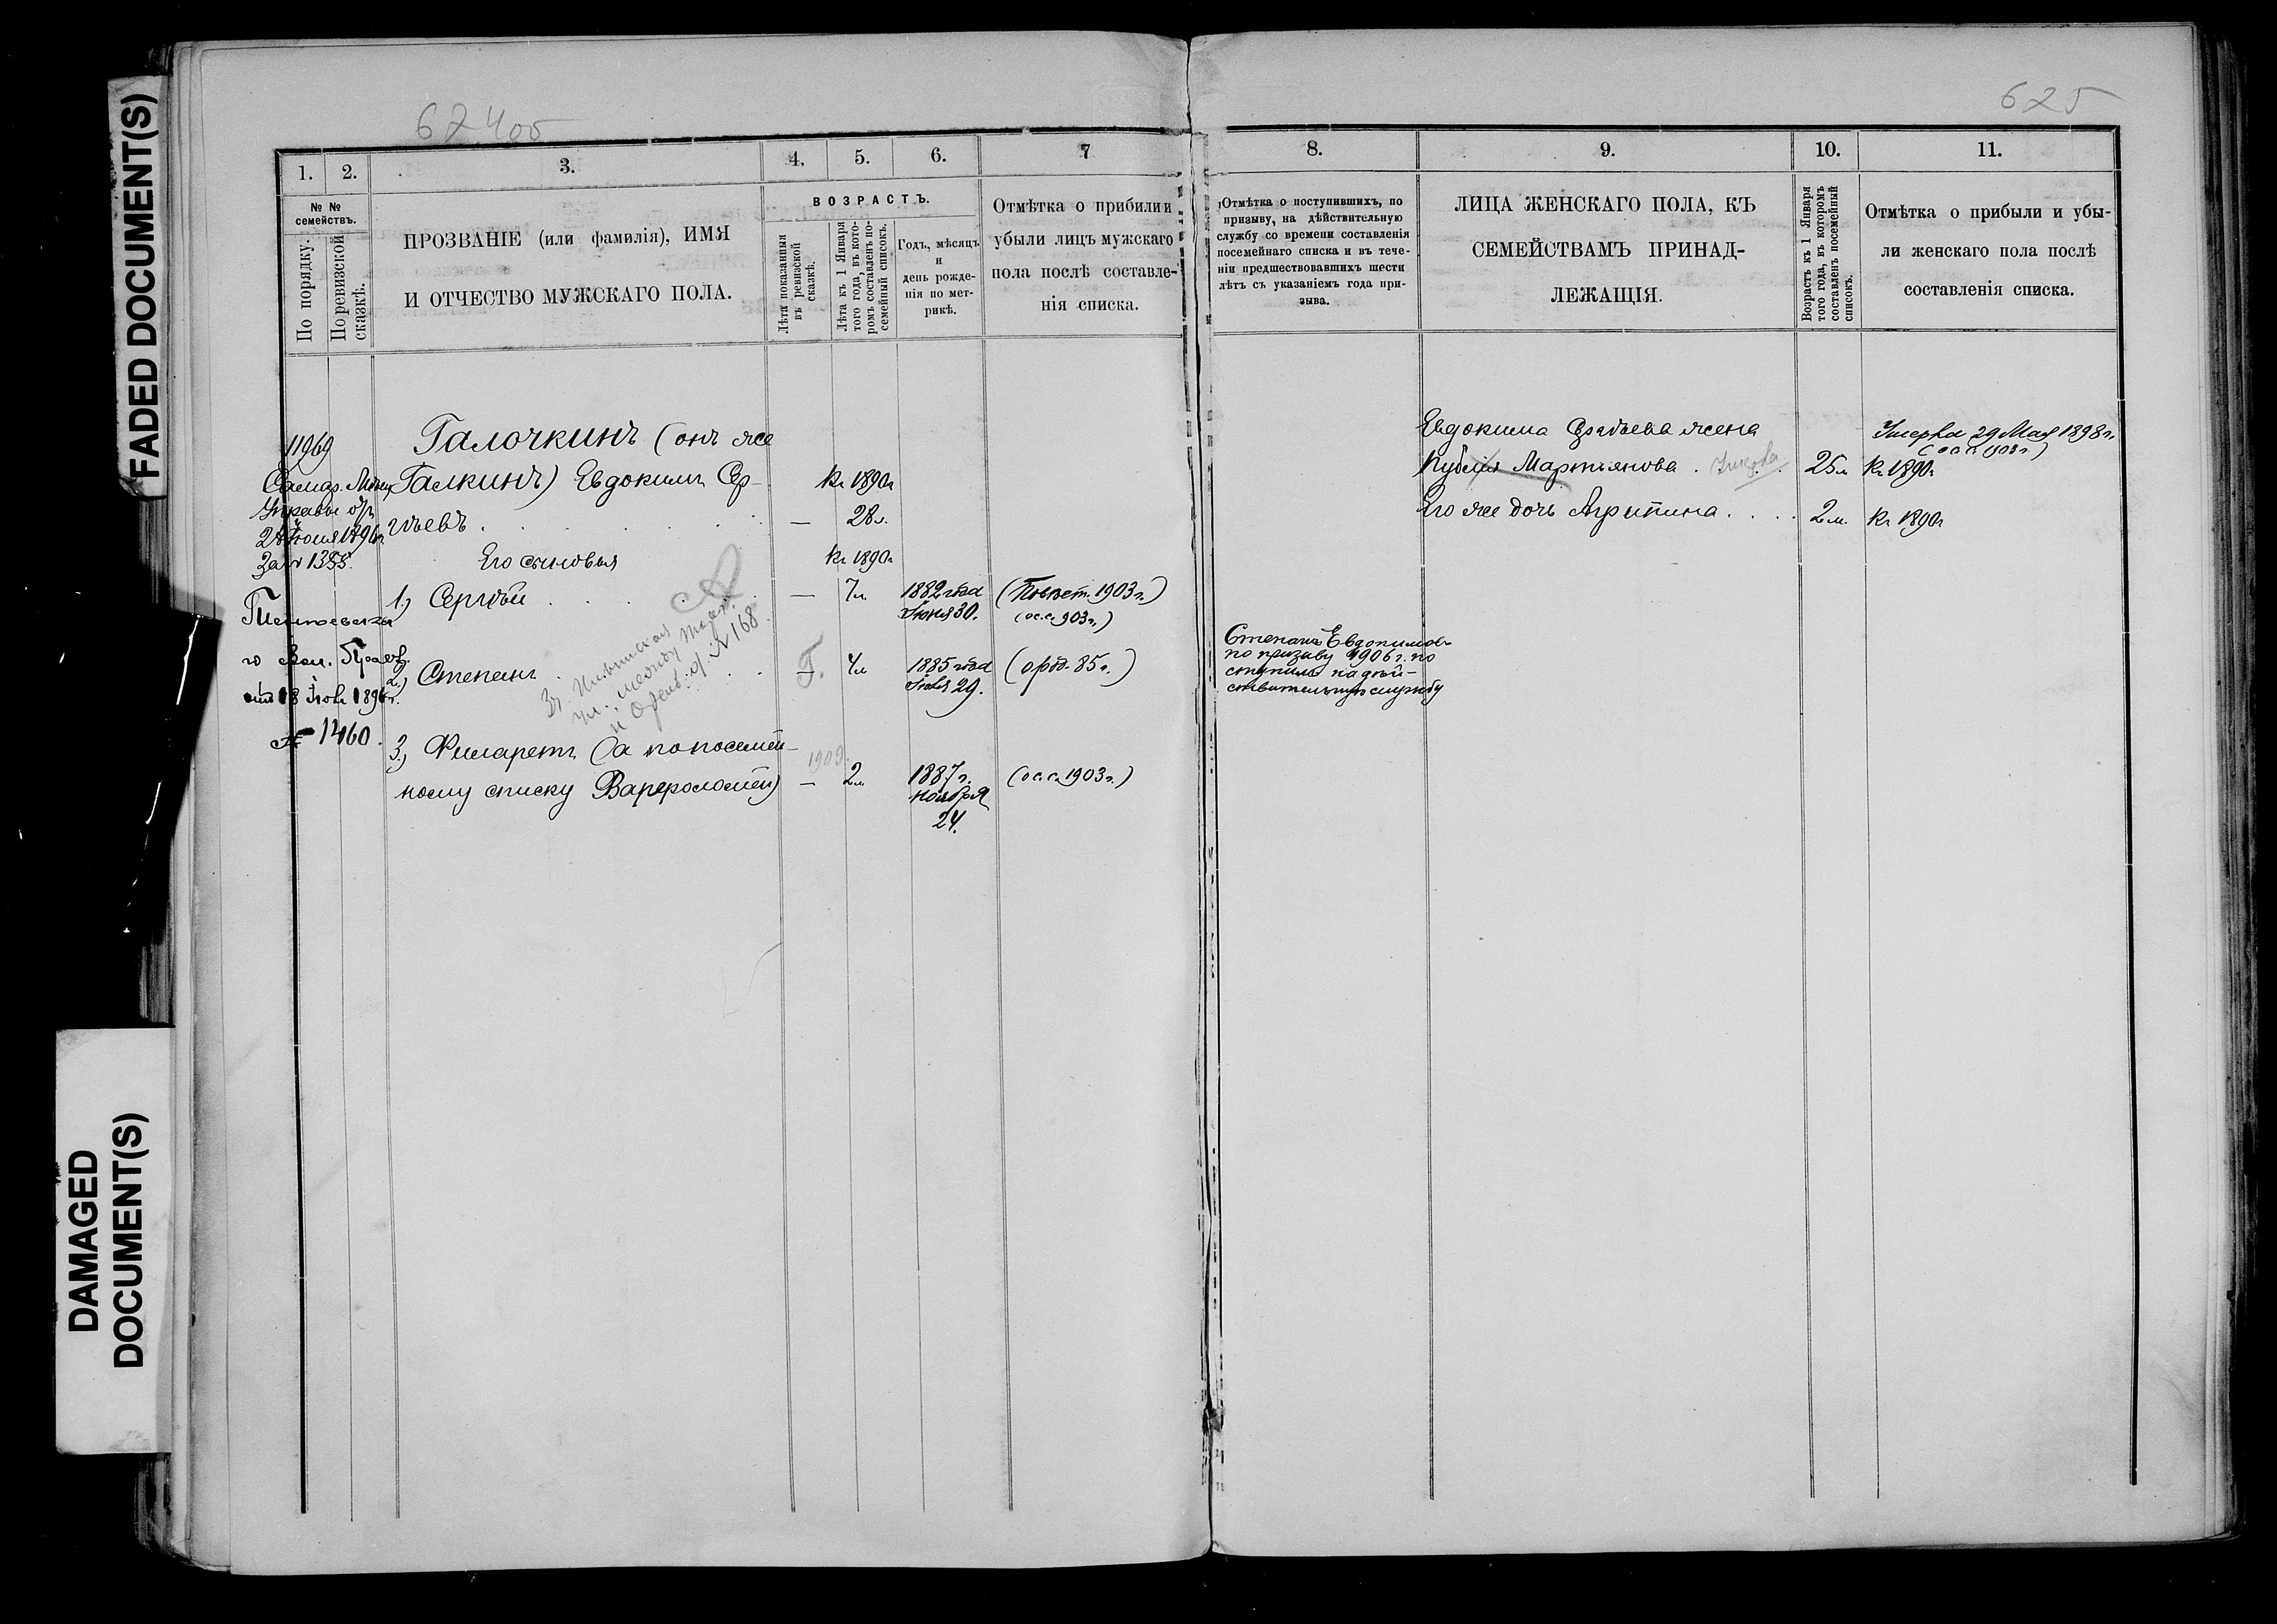 FADED DOCUMENT(S)
DAMAGED
DOCUMENT(S)
624об
625
1.
2.
3.
4.
5.
6.
7
№ №
семействъ.
По порядку.
По ревизской
сказкѣ.
ПРОЗВАНІЕ (или фамилія), ИМЯ
И ОТЧЕСТВО МУЖСКАГО ПОЛА.
ВОЗРАСТЪ.
Лѣта показанныя
въ ревизской
сказкѣ.
Лѣта къ 1 Января
того года, въ кото-
ромъ составленъ по-
семейный списокъ.
Годъ, мѣсяцъ
и
день рожде-
нія по мет-
рикѣ.
Отмѣтка о прибили и
убыли лицъ мужскаго
пола послѣ составле-
нія списка.
11969
Самар. Мѣщ.
Управы отъ
24 Іюня 1896г
за № 1355.
вол. Бузов.
отъ 18 Ноя 1896г.
№ 1460.
Галочкинъ (онъ же
Галкинъ) Евдокимъ Сер-
гѣевъ . . . . . . —
Кг 1890г
28 л.
Его сыновья
Кг 1890г
1.) Сергѣй . . . . —
7 л.
1882 года
Іюня 30.
(Повѣст. 1903 г.)
(ос.с. 903 г.)
2.) Степанъ . . . .
Г.
4 л
1885 года
29.
(ороб. 85 г.)
Ильинская
ул. между
и Оренб. д. № 168.
3.) Филаретъ (а по посемей-
ному списку Варфоломей) —
1909.
2 л.
1887 г.
Ноября
24.
(ос.с. 1903 г.)
8.
9.
10.
11.
Отмѣтка о поступившихъ, по
призыву, на дѣйствительную
службу со времени составленія
посемейнаго списка и въ тече-
ніи предшествовавшихъ шести
лѣтъ съ указаніемъ года при-
зыва.
ЛИЦА ЖЕНСКАГО ПОЛА, КЪ
СЕМЕЙСТВАМЪ ПРИНАД-
ЛЕЖАЩІЯ.
Возрастъ къ 1 Января
того года, въ которомъ
составленъ посемейный
списокъ.
Отмѣтка о прибыли и убы-
ли женскаго пола послѣ
составленія списка.
Евдокима Сергѣева жена
Мартьянова . Умерла
25 л
Умерла 29 Мая 1898 г.
(ос.с. 903 г.)
Кг 1890г
Его же дочь Агрипина . . . .
2 л.
Кг 1890г
Степанъ Евдокимовъ
по призыву 1906 г. по
ступилъ на дѣй-
ствительную службу